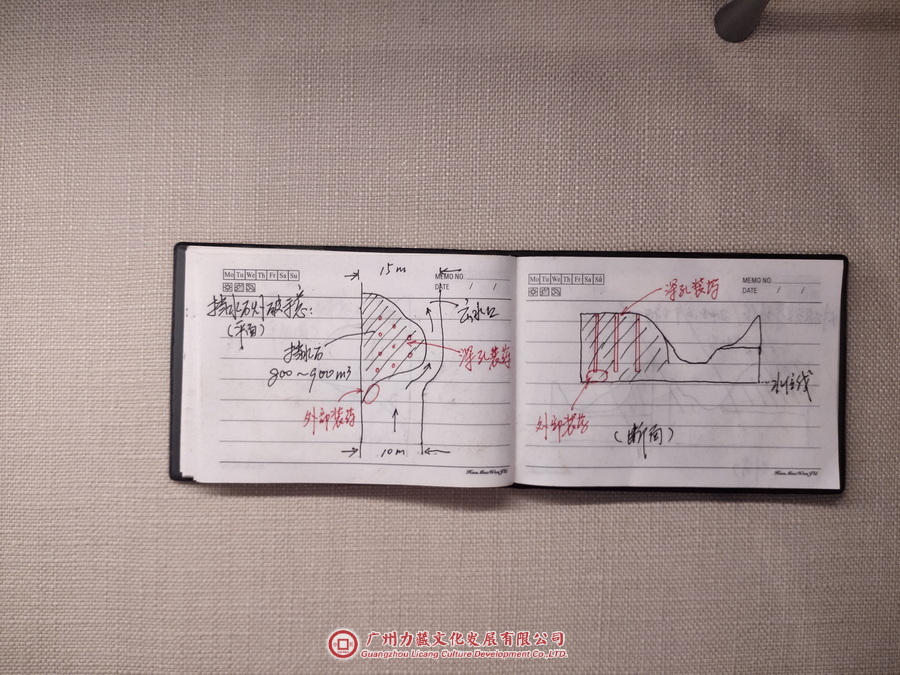 Mo Tu We Th Fr Sa Su
MEMO NO.
DATE / /
15m
挡水石爆破示意:
(平面)
出水口
挡水石
800~900m³
深孔装药
外部装药
10m
Mo Tu We Th Fr Sa Su
MEMO NO.
DATE / /
深孔装药
水位线
外部装药
(断面)
广州力蓝文化发展有限公司
Guangzhou Licang Culture Development Co.,LTD.